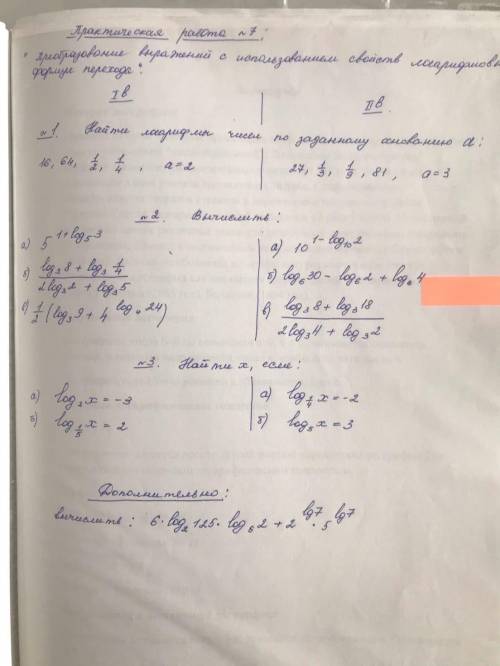 Практическая работа №7:
"Преобразование выражений с использованием свойств логарифмов
формул перехода".
I в
II в.
№1. Найти логарифмы чисел по заданному основанию a:
16, 64, 1/2, 1/4, a=2
27, 1/3, 1/9, 81, a=3
№2. Вычислить:
а) 5^(1+log₅3)
а) 10^(1-log₁₀2)
б) (log₃8 + log₃ 1/4) / (2log₃2 + log₃5)
б) log₆30 - log₆2 + log 4
в) 1/2 (log₃9 + 4^(log 24))
в) (log₃8 + log₃18) / (2log₃4 + log₃2)
№3. Найти x, если:
а) log₂x = -3
а) log_(1/4) x = -2
б) log_(1/5) x = 2
б) log₅x = 3
Дополнительно:
вычислить: 6·log₂125·log₅2 + 2^(lg7)·5^(lg7)